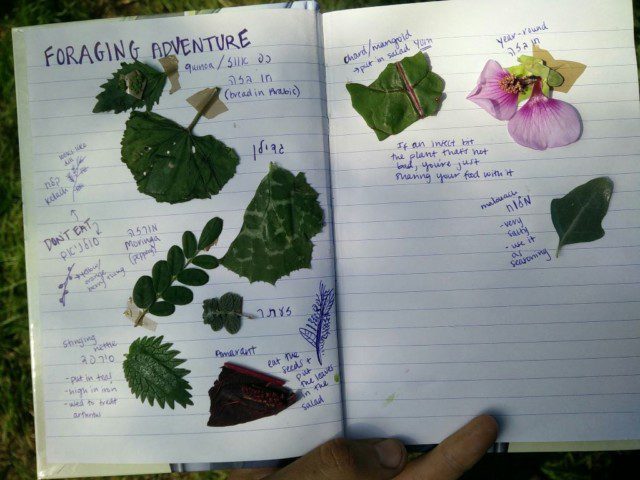 FORAGING ADVENTURE
quinoa/
חבזה
(bread in Arabic)
גדילן
DON'T EAT
מורינגה
Moringa
(peppery)
yellow/
orange
berry thing
זעתר
stinging
nettle
סרפד
- put in tea!
- high in iron
- used to treat
arthritis
Amarant
eat the
seeds +
put
the leaves
in the
salad
chard/mangold
→ put in salad YUM
year-round
חבזה
If an insect bit
the plant that's not
bad, you're just
sharing your food with it
מלוח
- very
salty
- use it
as
seasoning